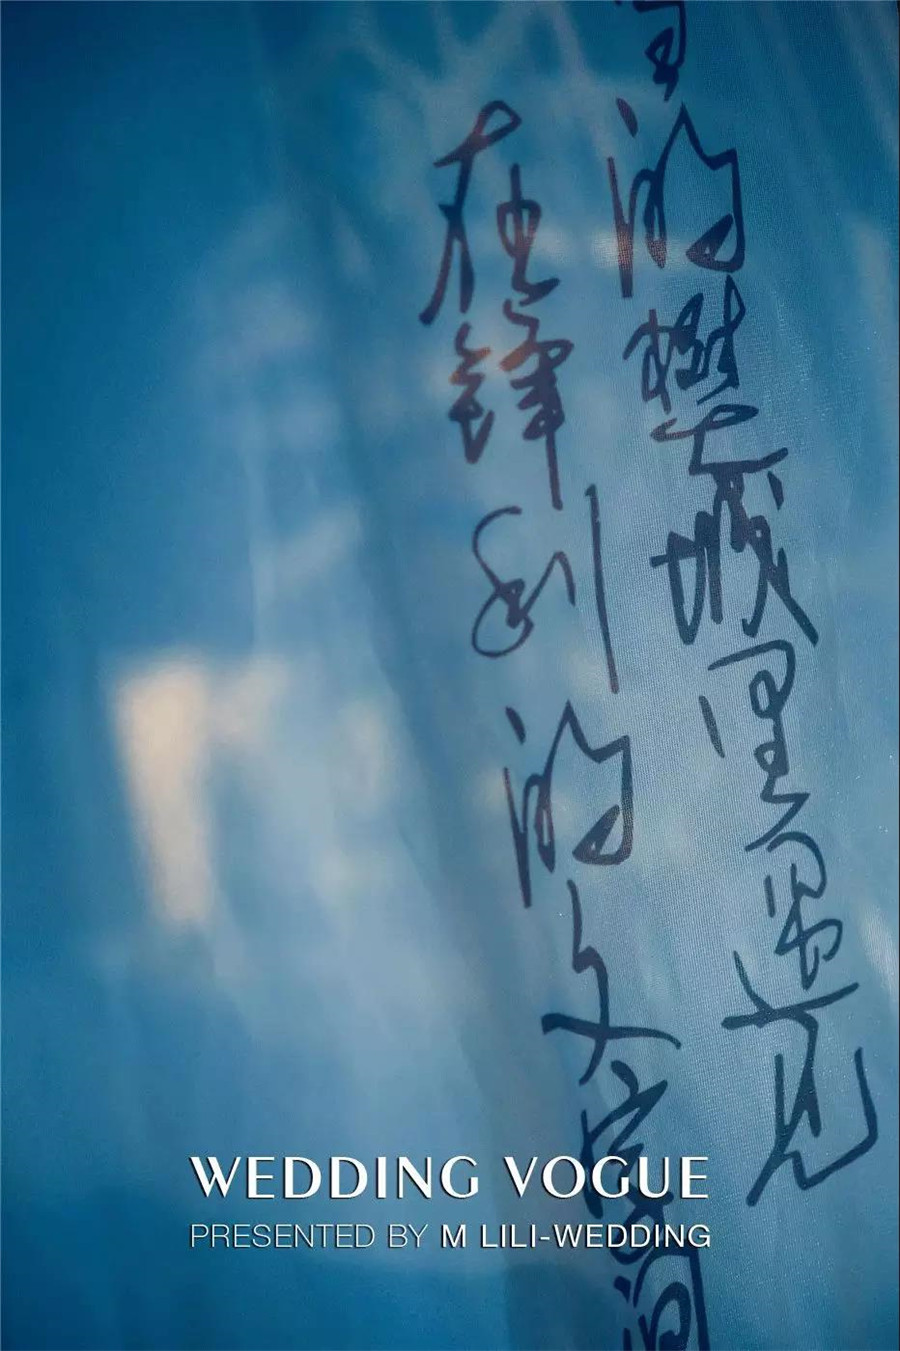 的樊城里遇见
在锋利的文
WEDDING VOGUE
PRESENTED BY M LILI-WEDDING